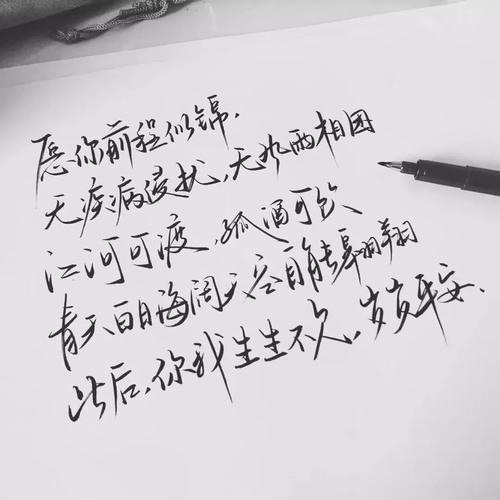 愿你前程似锦.
无疾病侵扰,无风雨相困
江河可渡.孤酒可饮
青天白日海阔天容自能翱翔
此后,你我生生不欠,岁岁平安.